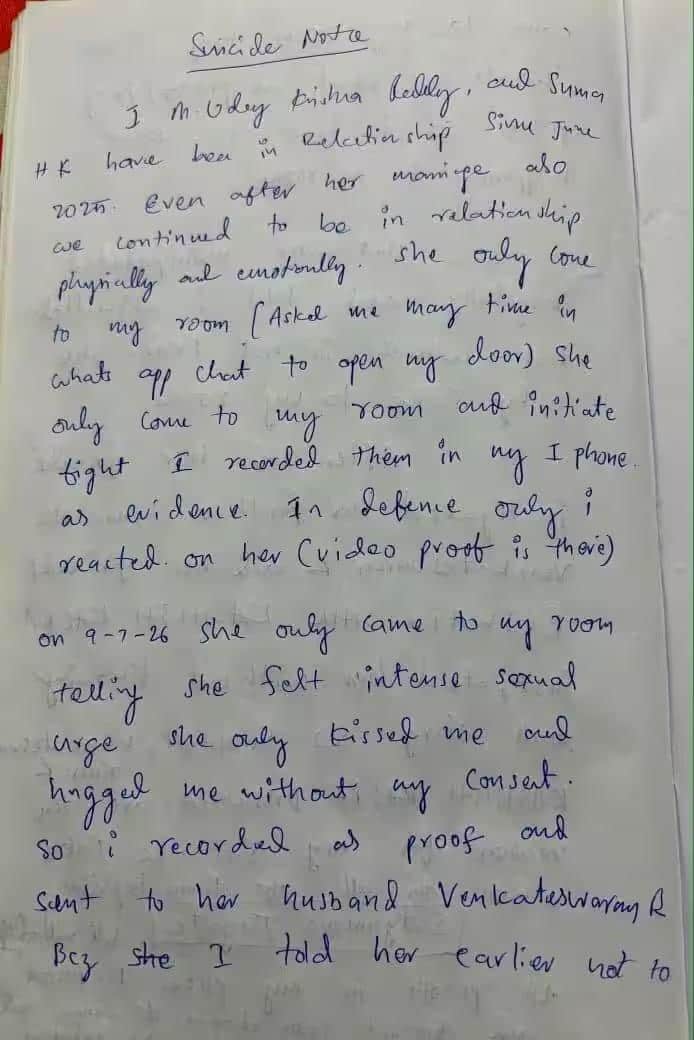 Suicide Note
I M. Udey Krishna Reddy, and Suma
H K have been in Relationship Since June
2025. Even after her marriage also
we continued to be in relationship
physically and emotionally. She only come
to my room [Asked me many time in
whats app chat to open my door) She
only come to my room and initiate
fight I recorded them in my I phone.
as evidence. In defence only i
reacted. on her (video proof is there)
on 9-7-26 she only came to my room
telling she felt intense sexual
urge she only kissed me and
hugged me without my consent.
So i recorded as proof and
sent to her husband Venkateswaran R
Bcz she I told her earlier not to